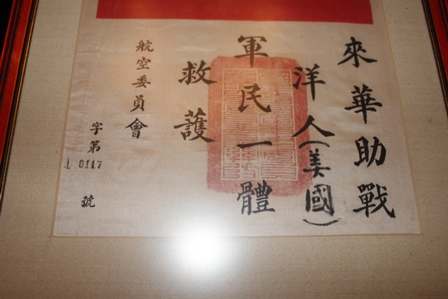 來華助戰
洋人(美國)
軍民一體
救護
航空委員會
字第
0117
號